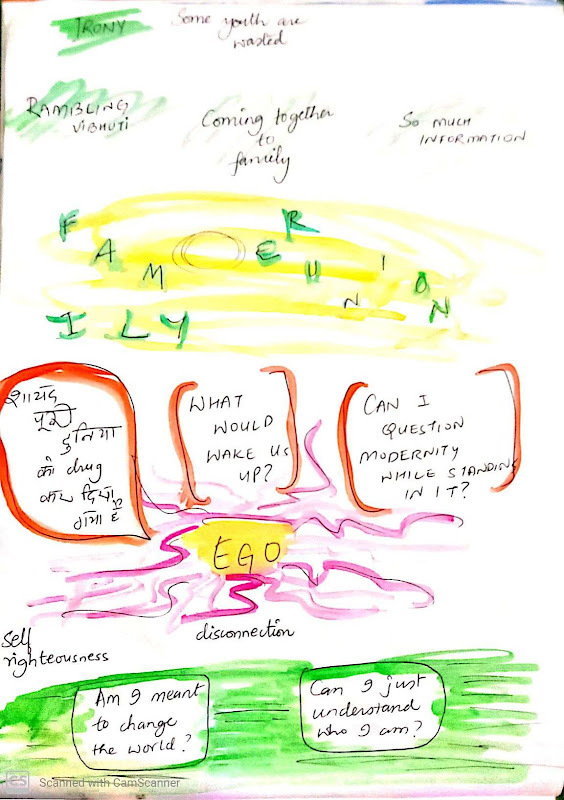 IRONY
Some youth are
wasted
RAMBLING
VIBHUTI
Coming together
to
family
SO MUCH
INFORMATION
FAMILY
REUNION
शायद
पूरी
दुनिया
को drug
कर दिया
गया है
WHAT
WOULD
WAKE US
UP?
CAN I
QUESTION
MODERNITY
WHILE STANDING
IN IT?
EGO
self
righteousness
disconnection
Am I meant
to change
the world?
Can I just
understand
who I am?
CS Scanned with CamScanner